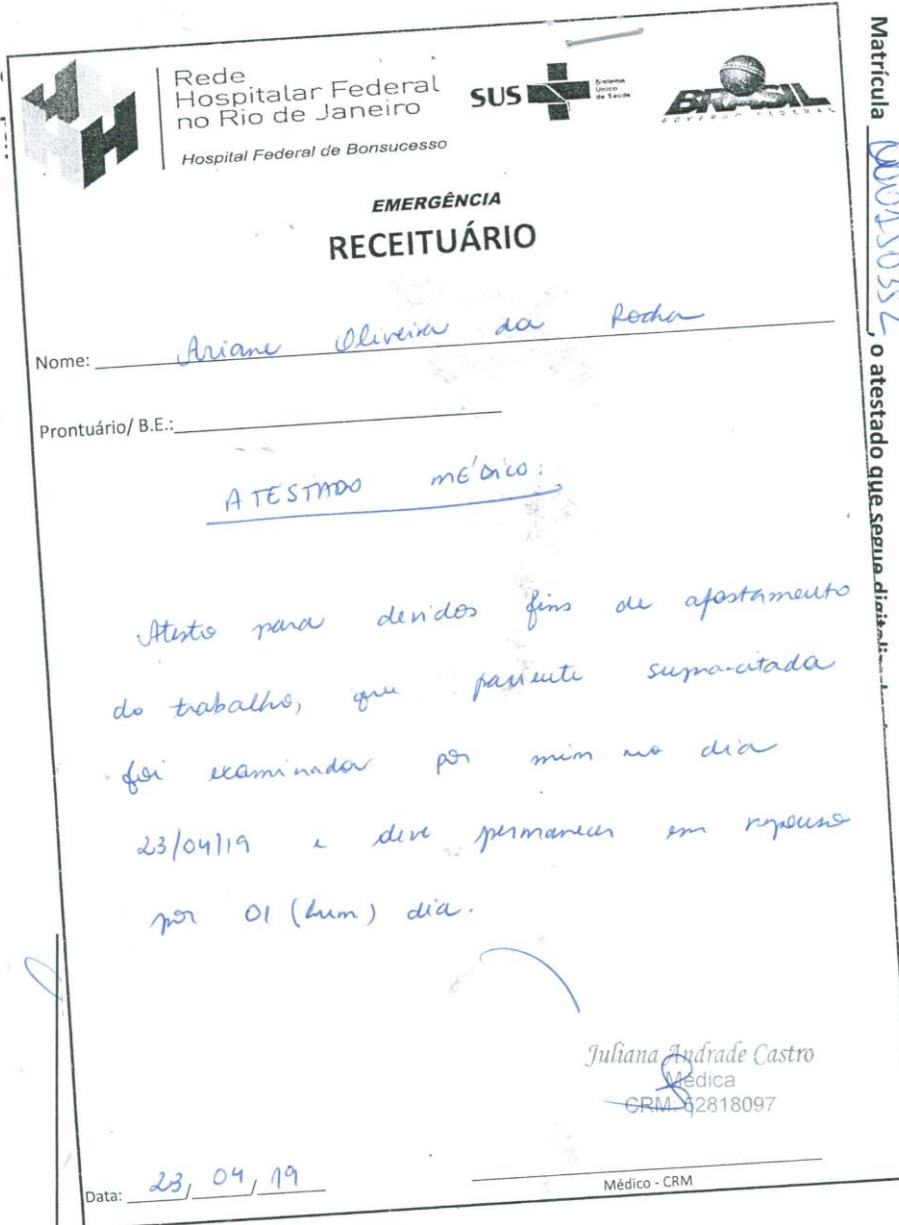 Rede
Hospitalar Federal
no Rio de Janeiro
Hospital Federal de Bonsucesso
SUS
Sistema
Único
de Saúde
BRASIL
GOVERNO FEDERAL
EMERGÊNCIA
RECEITUÁRIO
Nome: Ariane Oliveira da Rocha
Prontuário/ B.E.:
ATESTADO MÉDICO:
Atesto para devidos fins de afastamento
do trabalho, que paciente supra-citada
foi examinada por mim no dia
23/04/19 e deve permanecer em repouso
por 01 (hum) dia.
Juliana Andrade Castro
Médica
CRM: 52818097
Data: 23/04/19
Médico - CRM
Matrícula , o atestado que segue